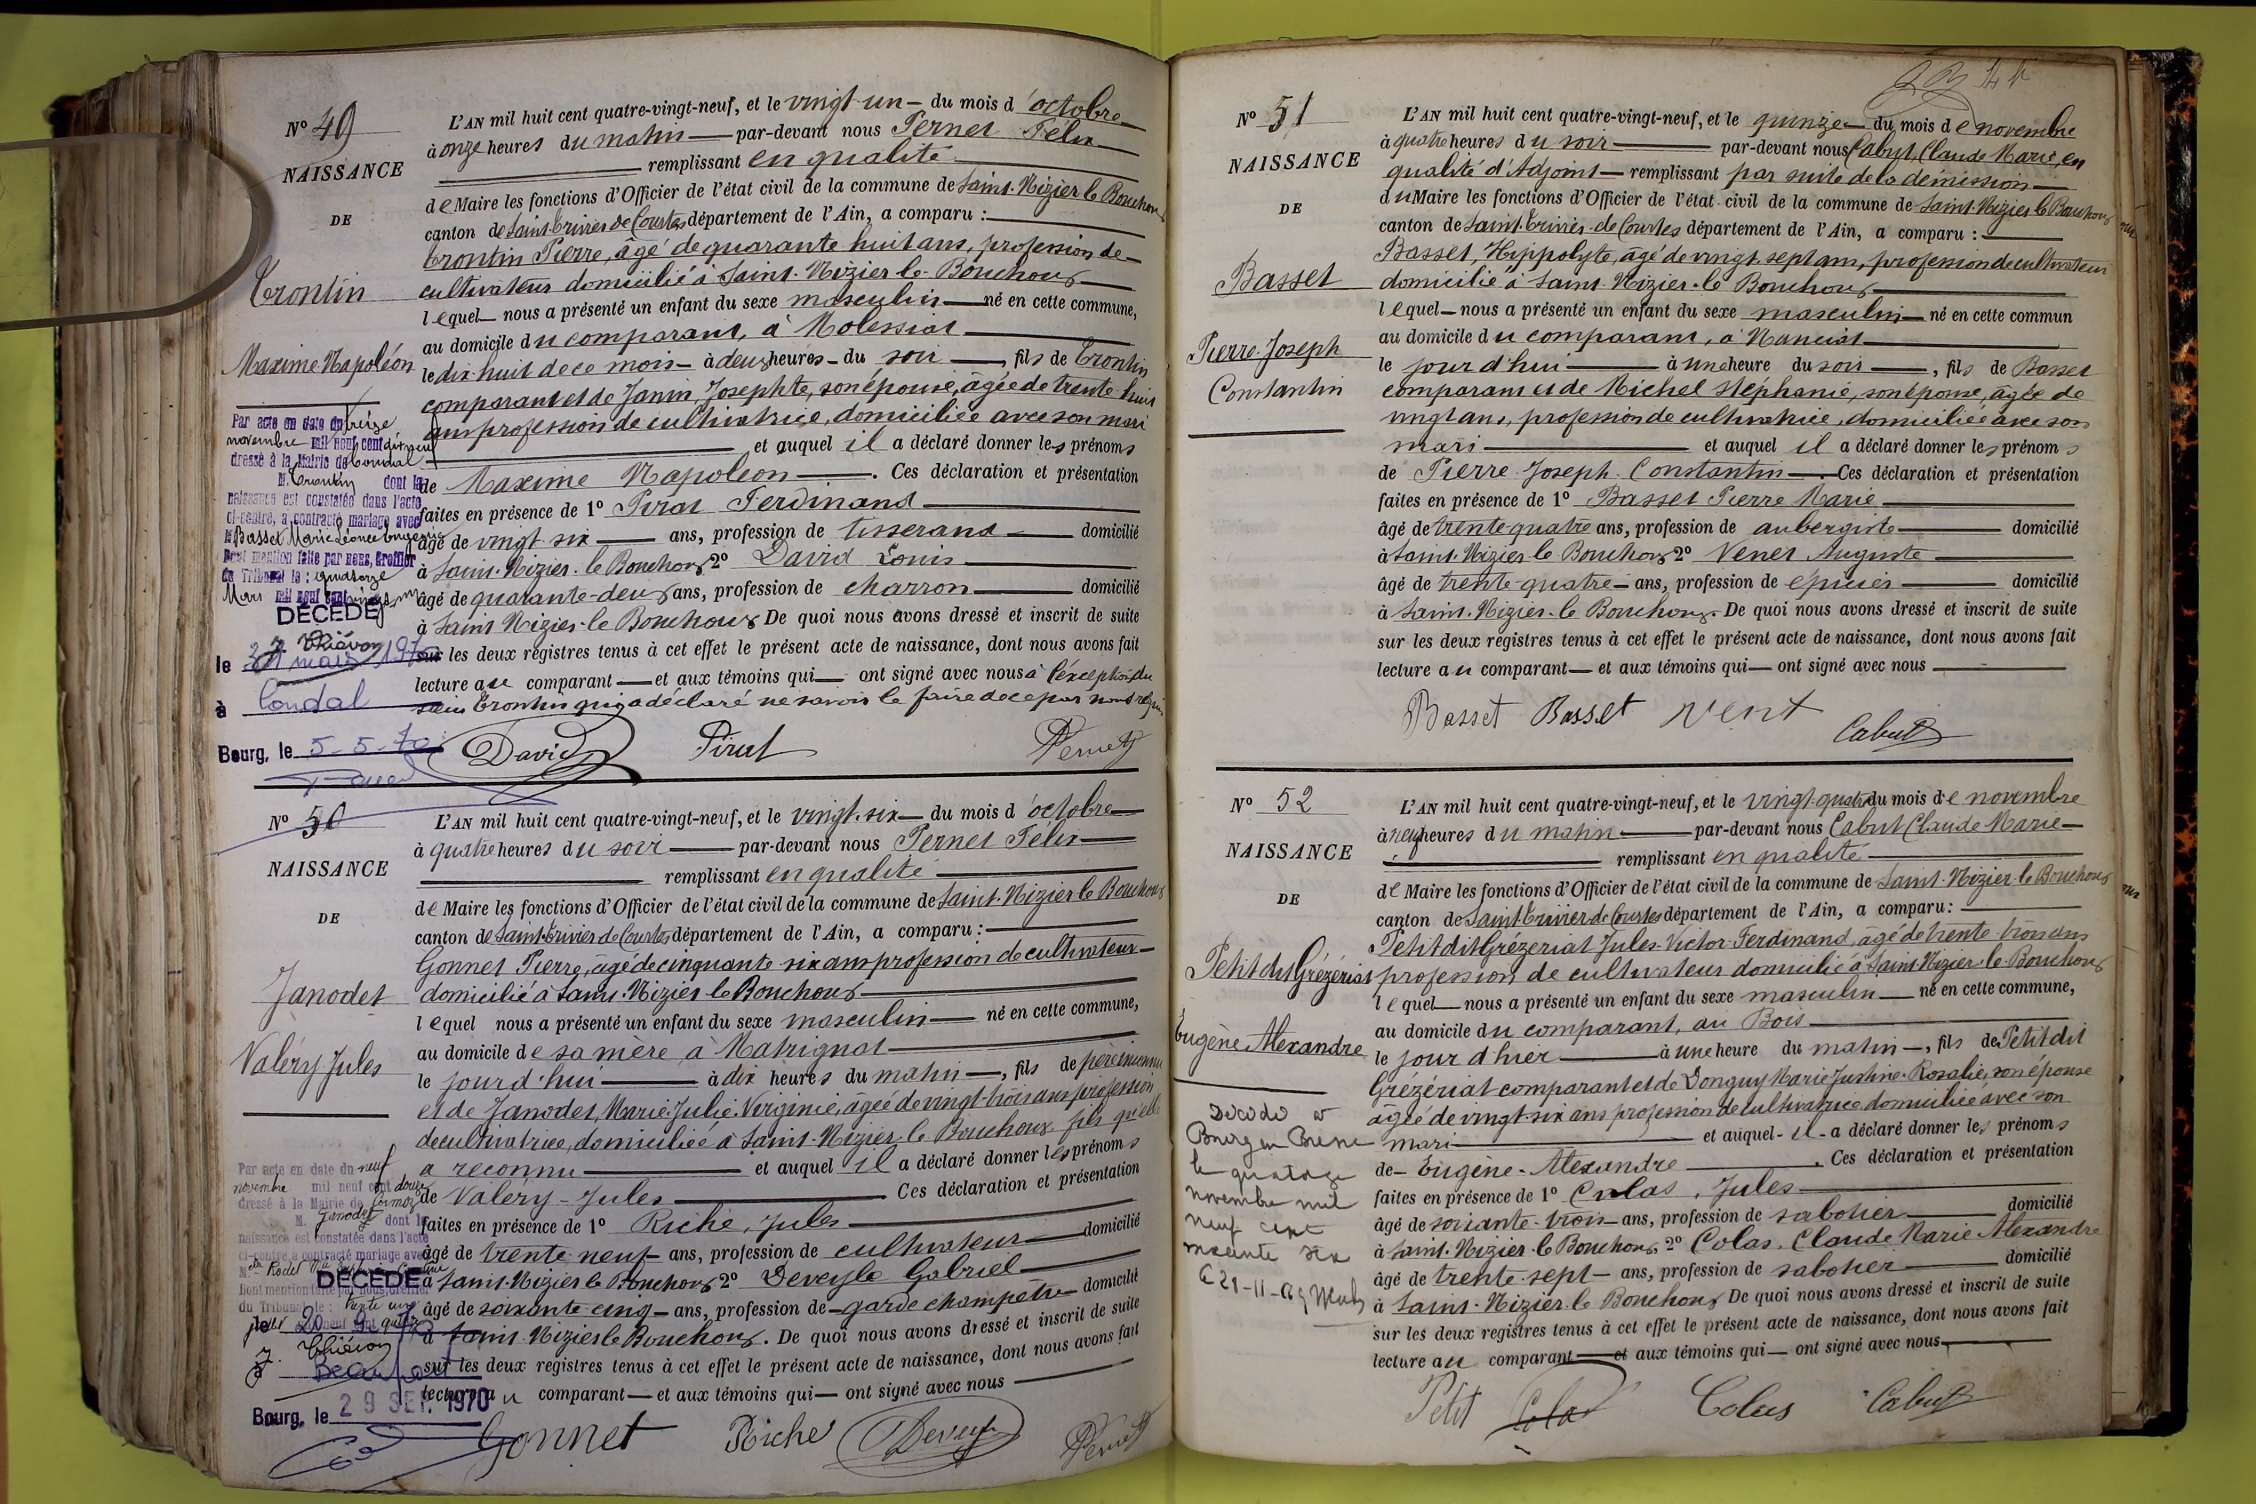 N° 49
NAISSANCE
DE
Trontin
Maxime Napoléon
Par acte en date du treize
novembre mil neuf cent dix neuf
dressé à la Mairie de Condal
M. Trontin dont la
naissance est constatée dans l'acte
ci-contre, a contracté mariage avec
Basset Marie Léonce
Dont mention faite par nous, Greffier
du Tribunal le : quatorze
Mars mil neuf cent vingt un
DÉCÉDÉ
J. Thiévon
le mars 1970
à Condal
Bourg, le 5-5-70
L'AN mil huit cent quatre-vingt-neuf, et le vingt-un du mois d'octobre
à onze heures du matin par-devant nous Pernet Félix
remplissant en qualité
de Maire les fonctions d'Officier de l'état civil de la commune de Saint-Nizier le Bouchoux
canton de Saint-Trivier de Courtes département de l'Ain, a comparu :
Trontin Pierre, âgé de quarante huit ans, profession de
cultivateur domicilié à Saint-Nizier-le-Bouchoux
lequel nous a présenté un enfant du sexe masculin né en cette commune,
au domicile du comparant, à Molessiat
le dix-huit de ce mois à deux heures du soir, fils de Trontin
comparant et de Janin Josephte, son épouse, âgée de trente-huit
ans profession de cultivatrice, domiciliée avec son mari
et auquel il a déclaré donner les prénoms
de Maxime Napoléon. Ces déclaration et présentation
faites en présence de 1° Pirat Ferdinand
âgé de vingt six ans, profession de tisserand domicilié
à Saint-Nizier-le Bouchoux 2° David Louis
âgé de quarante-deux ans, profession de charron domicilié
à Saint Nizier-le Bouchoux De quoi nous avons dressé et inscrit de suite
sur les deux registres tenus à cet effet le présent acte de naissance, dont nous avons fait
lecture au comparant et aux témoins qui ont signé avec nous à l'exception du
sieur Trontin qui a déclaré ne savoir le faire de ce par nous requis
David Pirat Pernet
N° 50
NAISSANCE
DE
Janodet
Valéry Jules
Par acte en date du neuf
novembre mil neuf cent douze
dressé à la Mairie de Cormoz
M. Janodet dont la
naissance est constatée dans l'acte
ci-contre a contracté mariage avec
Rodet
Dont mention faite par nous, Greffier
du Tribunal le : trente un
DÉCÉDÉ
le 20 9
J. Thiévon
à Beaupont
Bourg, le 29 SEP. 1970
L'AN mil huit cent quatre-vingt-neuf, et le vingt-six du mois d'octobre
à quatre heures du soir par-devant nous Pernet Félix
remplissant en qualité
de Maire les fonctions d'Officier de l'état civil de la commune de Saint-Nizier le Bouchoux
canton de Saint-Trivier-de-Courtes département de l'Ain, a comparu :
Gonnet Pierre, âgé de cinquante six ans profession de cultivateur
domicilié à Saint-Nizier le Bouchoux
lequel nous a présenté un enfant du sexe masculin né en cette commune,
au domicile de sa mère à Matrignat
le jourd'hui à dix heures du matin, fils de père inconnu
et de Janodet, Marie Julie Virginie, âgée de vingt-trois ans profession
de cultivatrice, domiciliée à Saint-Nizier le Bouchoux fils qu'elle
a reconnu et auquel il a déclaré donner les prénoms
de Valéry-Jules Ces déclaration et présentation
faites en présence de 1° Riche, Jules
âgé de trente neuf ans, profession de cultivateur domicilié
à Saint-Nizier le Bouchoux 2° Deveyle Gabriel
âgé de soixante cinq ans, profession de garde champêtre domicilié
à Saint-Nizier le Bouchoux. De quoi nous avons dressé et inscrit de suite
sur les deux registres tenus à cet effet le présent acte de naissance, dont nous avons fait
lecture au comparant et aux témoins qui ont signé avec nous
Gonnet Riche Pernet
N° 51
NAISSANCE
DE
Basset
Pierre-Joseph
Constantin
L'AN mil huit cent quatre-vingt-neuf, et le quinze du mois de novembre
à quatre heures du soir par-devant nous Cabut, Claude Marie, en
qualité d'Adjoint remplissant par suite de la démission
du Maire les fonctions d'Officier de l'état civil de la commune de Saint-Nizier le Bouchoux
canton de Saint-Trivier-de-Courtes département de l'Ain, a comparu :
Basset, Hippolyte, âgé de vingt sept ans, profession de cultivateur
domicilié à Saint-Nizier-le Bouchoux
lequel nous a présenté un enfant du sexe masculin né en cette commun
au domicile du comparant, à Nanciat
le jourd'hui à une heure du soir, fils de Basset
comparant et de Michel Stéphanie, son épouse, âgée de
vingt ans, profession de cultivatrice, domiciliée avec son
mari et auquel il a déclaré donner les prénoms
de Pierre-Joseph Constantin. Ces déclaration et présentation
faites en présence de 1° Basset Pierre Marie
âgé de trente-quatre ans, profession de aubergiste domicilié
à Saint-Nizier-le Bouchoux 2° Venet Auguste
âgé de trente-quatre ans, profession de épicier domicilié
à Saint-Nizier-le Bouchoux. De quoi nous avons dressé et inscrit de suite
sur les deux registres tenus à cet effet le présent acte de naissance, dont nous avons fait
lecture au comparant et aux témoins qui ont signé avec nous
Basset Basset Venet Cabut
N° 52
NAISSANCE
DE
Petit dit Grézériat
Eugène Alexandre
Décédé à
Bourg en Bresse
le quatorze
novembre mil
neuf cent
soixante six
L'AN mil huit cent quatre-vingt-neuf, et le vingt-quatre du mois de novembre
à neuf heures du matin par-devant nous Cabut Claude Marie
remplissant en qualité
de Maire les fonctions d'Officier de l'état civil de la commune de Saint-Nizier-le Bouchoux
canton de Saint-Trivier-de-Courtes département de l'Ain, a comparu :
Petit dit Grézeriat Jules-Victor-Ferdinand, âgé de trente-trois ans
profession de cultivateur domicilié à Saint-Nizier-le-Bouchoux
lequel nous a présenté un enfant du sexe masculin né en cette commune,
au domicile du comparant, au Bois
le jour d'hier à une heure du matin, fils de Petit dit
Grézériat comparant et de Donguy Marie Justine-Rosalie, son épouse
âgée de vingt-six ans profession de cultivatrice domiciliée avec son
mari et auquel il a déclaré donner les prénoms
de Eugène-Alexandre. Ces déclaration et présentation
faites en présence de 1° Colas, Jules
âgé de soixante-trois ans, profession de sabotier domicilié
à Saint-Nizier-le Bouchoux 2° Colas, Claude Marie Alexandre
âgé de trente-sept ans, profession de sabotier domicilié
à Saint-Nizier-le Bouchoux De quoi nous avons dressé et inscrit de suite
sur les deux registres tenus à cet effet le présent acte de naissance, dont nous avons fait
lecture au comparant et aux témoins qui ont signé avec nous
Petit Colas Colas Cabut